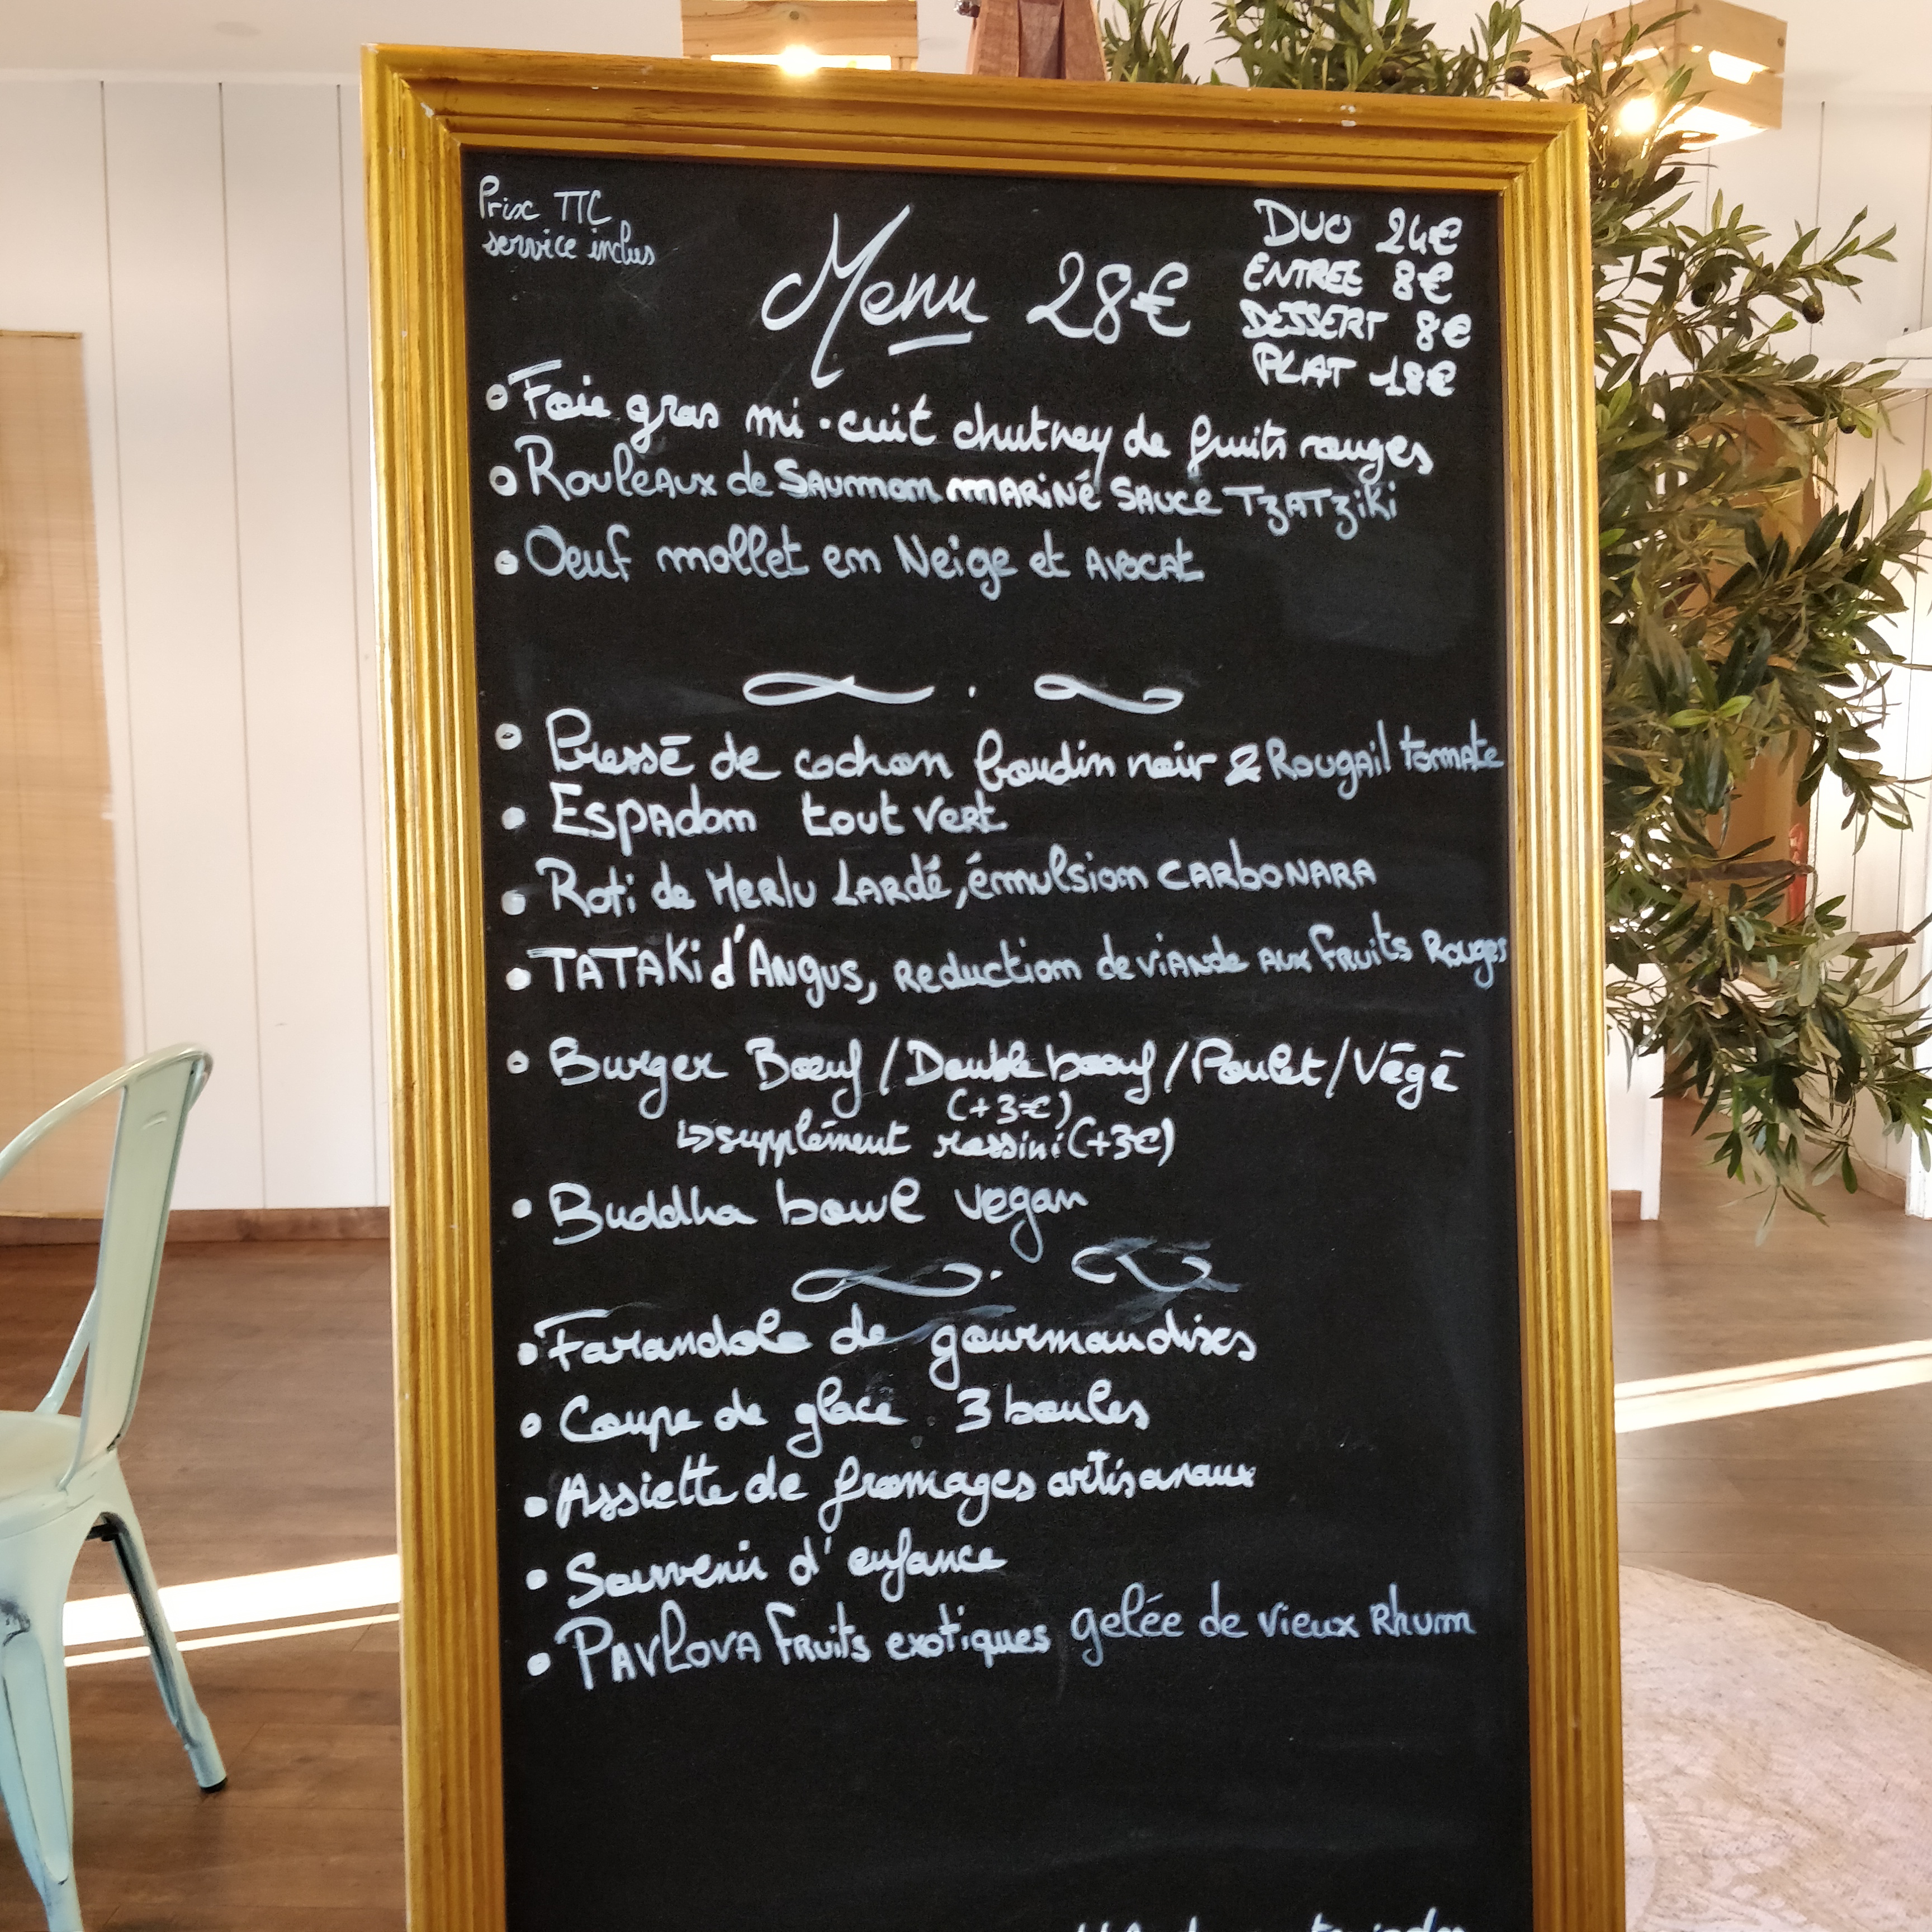 Prix TTC
service inclus
Menu 28€
DUO 24€
ENTREE 8€
DESSERT 8€
PLAT 18€
• Foie gras mi-cuit chutney de fruits rouges
• Rouleaux de Saumon mariné sauce Tzatziki
• Oeuf mollet en Neige et Avocat
• Pressé de cochon boudin noir & Rougail tomate
• Espadon tout vert
• Roti de Merlu Lardé, émulsion carbonara
• TATAKi d'Angus, reduction de viande aux fruits Rouges
• Burger Bœuf / Double bœuf / Poulet / Végé
(+3€)
↳ supplément rossini (+3€)
• Buddha bowl vegan
• Farandole de gourmandises
• Coupe de glace 3 boules
• Assiette de fromages artisanaux
• Souvenir d'enfance
• PAVLOVA Fruits exotiques gelée de vieux Rhum